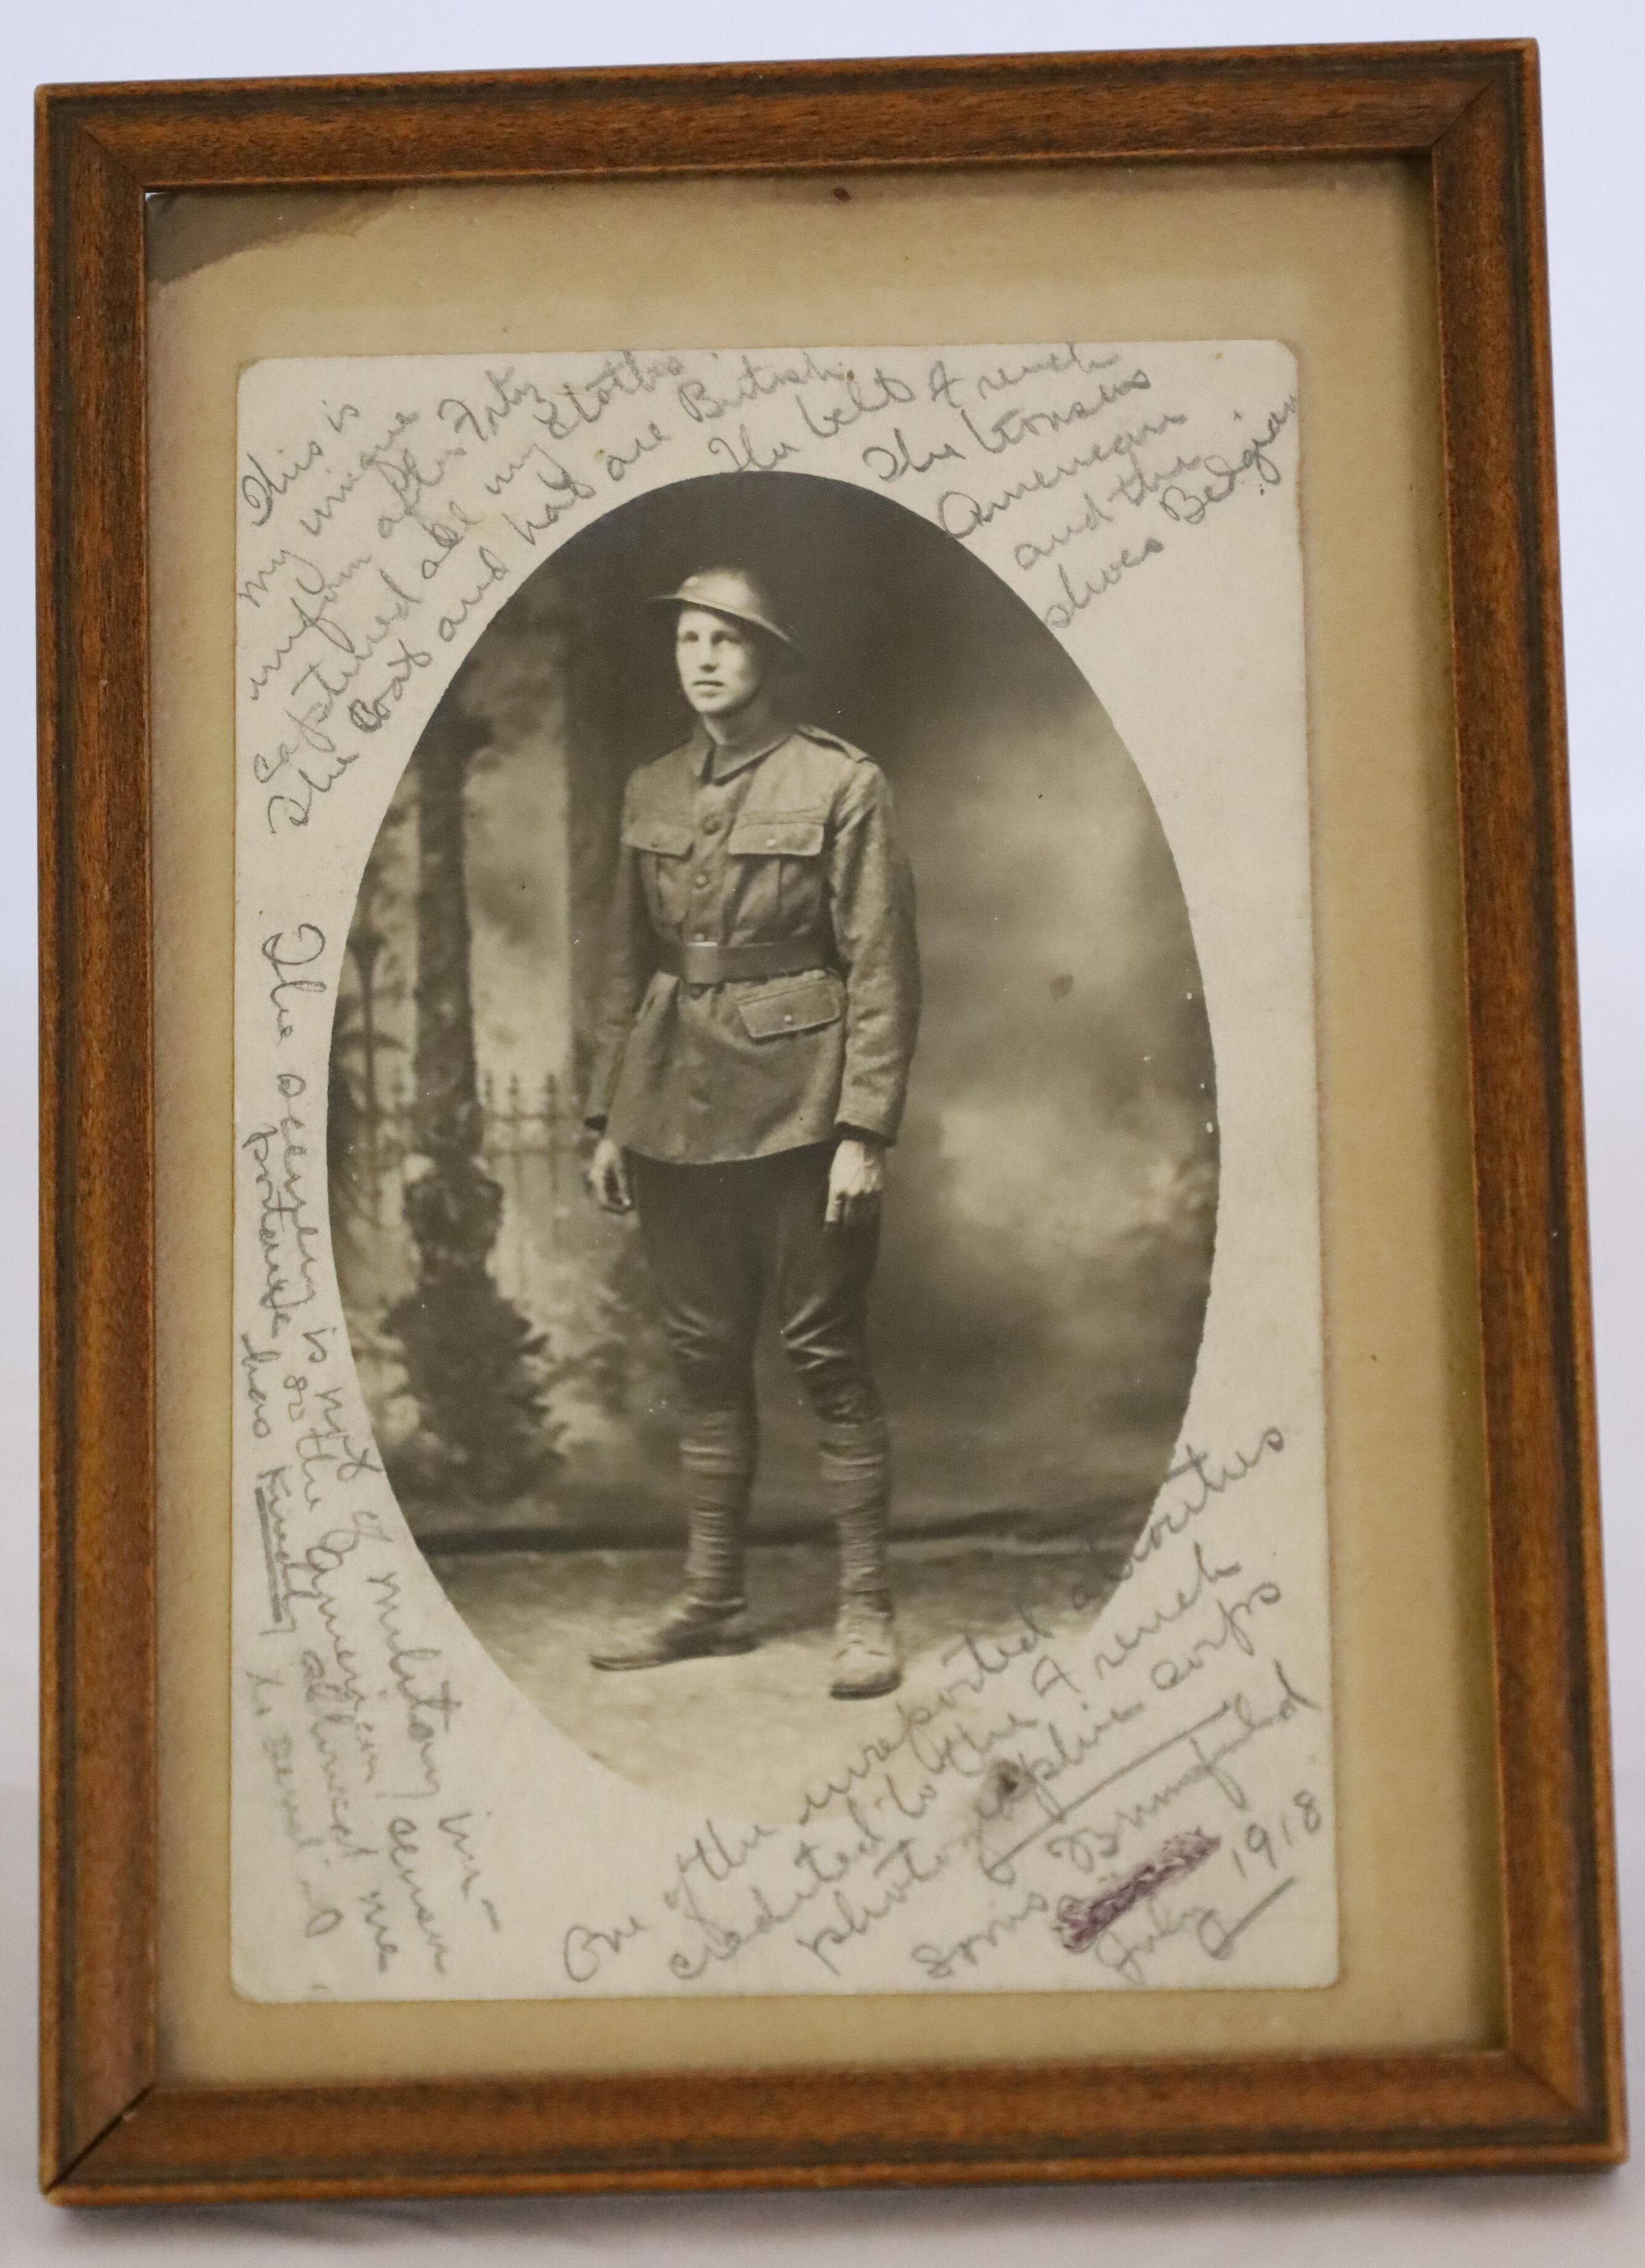 This is
my unique
uniform after Fritz
captured all my clothes.
The coat and hat are British.
The belt French
The trousers
American
and the
shoes Belgian.
The scenery is not of military im-
portance so the American censor
has kindly allowed me
to send it
One of the unreported atrocities
credited to the French
photographic corps
Louis Brumfield
July 1918